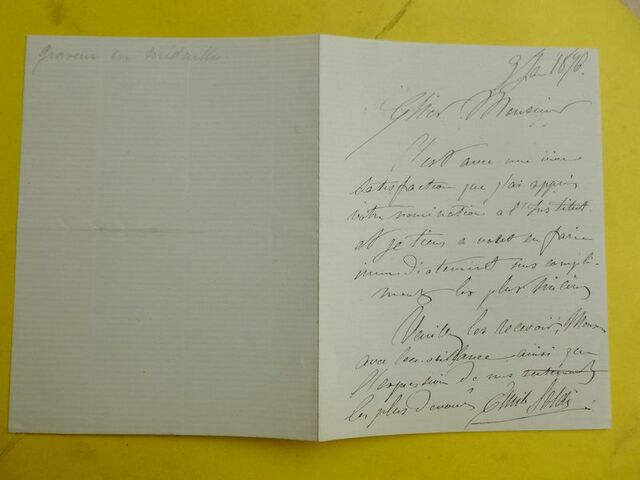 graveur en médailles
9 Ja 1876.
Cher Monsieur
C'est avec une vive
satisfaction que j'ai appris
votre nomination à l'Institut
et je tiens à vous en faire
immédiatement mes compli-
ments les plus sincères
Veuillez les recevoir, Monsieur
avec bienveillance ainsi que
l'expression de mes sentiments
les plus dévoués Emile Soldi